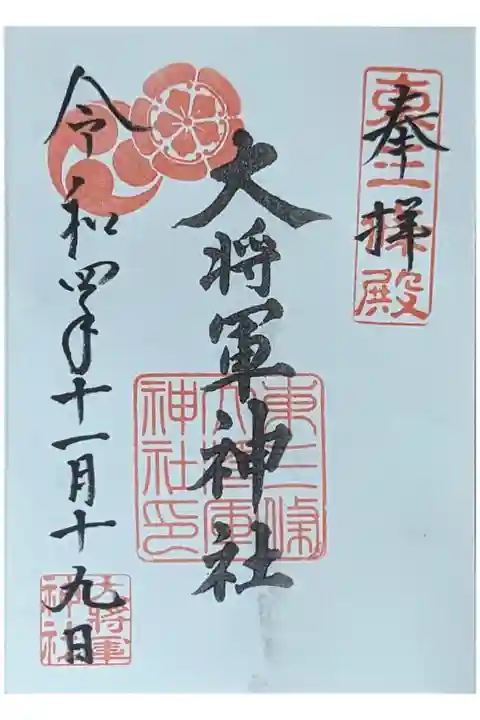 奉拝
東三條殿
大将軍神社
東三條
大将軍
神社印
令和四年十一月十九日
大将軍
神社